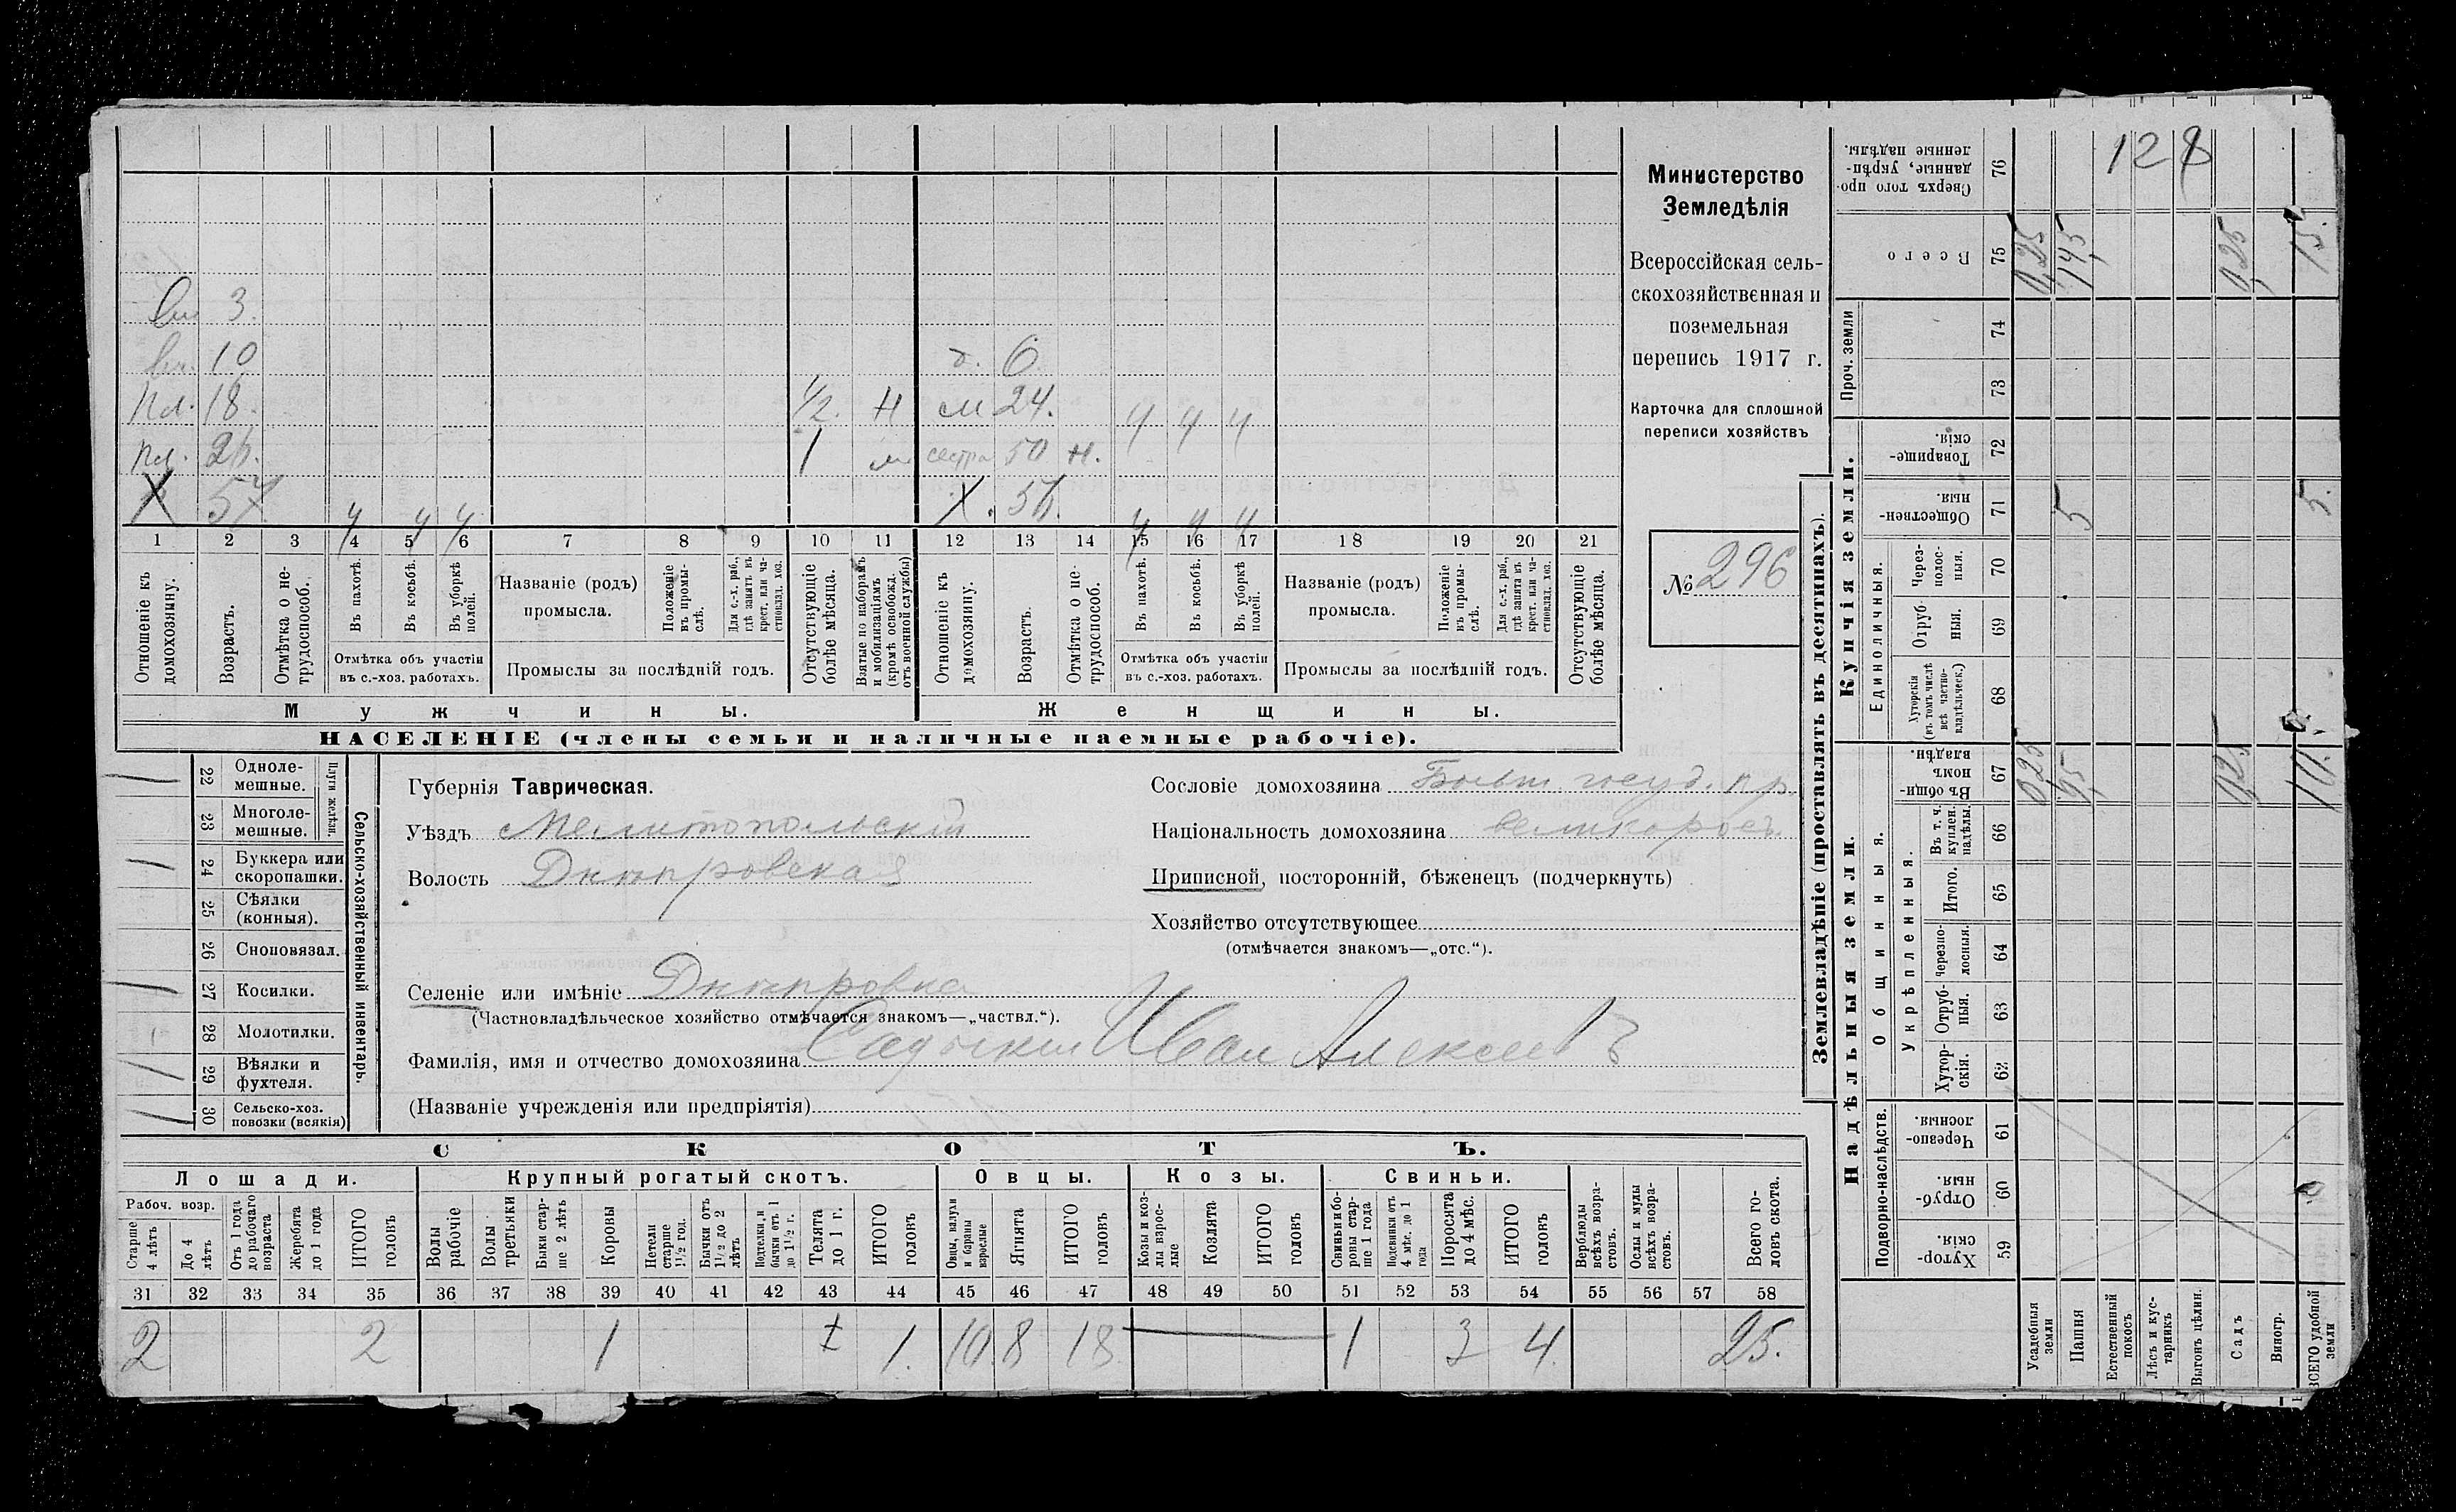 вн. 3.
вн. 10 д. 6.
пл. 18. 1/2. Н м 24. ч ч ч
пл. 26. 1 сестра 50 н.
Х 57 ч ч ч Х. 56. ч ч ч
1 2 3 4 5 6 7 8 9 10 11 12 13 14 15 16 17 18 19 20 21
Отношеніе къ домохозяину.
Возрастъ.
Отмѣтка о нетрудоспособ.
Въ пахотѣ.
Въ косьбѣ.
Въ уборкѣ полей.
Отмѣтка объ участіи въ с.-хоз. работахъ.
Названіе (родъ) промысла.
Положеніе въ промыслѣ.
Для с.-х. раб., гдѣ занятъ въ крест. или частновлад. хоз.
Промыслы за послѣдній годъ.
Отсутствующіе болѣе мѣсяца.
Взятые по наборамъ и мобилизаціямъ (кромѣ освобожд. отъ военной службы)
Отношеніе къ домохозяину.
Возрастъ.
Отмѣтка о нетрудоспособ.
Въ пахотѣ.
Въ косьбѣ.
Въ уборкѣ полей.
Отмѣтка объ участіи въ с.-хоз. работахъ.
Названіе (родъ) промысла.
Положеніе въ промыслѣ.
Для с.-х. раб., гдѣ занята въ крест. или частновлад. хоз.
Промыслы за послѣдній годъ.
Отсутствующіе болѣе мѣсяца.
Мужчины.
Женщины.
НАСЕЛЕНІЕ (члены семьи и наличные наемные рабочіе).
Министерство
Земледѣлія
Всероссійская сель-
скохозяйственная и
поземельная
перепись 1917 г.
Карточка для сплошной
переписи хозяйствъ
№ 296
Сельско-хозяйственный инвентарь.
Плуги желѣзн.
22 Однолемешные.
23 Многолемешные.
24 Буккера или скоропашки.
25 Сѣялки (конныя).
26 Сноповязал.
27 Косилки.
28 Молотилки.
29 Вѣялки и фухтеля.
30 Сельско-хоз. повозки (всякія)
Губернія Таврическая.
Уѣздъ Мелитопольскій
Волость Днѣпровская
Сословіе домохозяина Бывш. госуд. кр
Національность домохозяина великоросъ
Приписной, посторонній, бѣженецъ (подчеркнуть)
Хозяйство отсутствующее
(отмѣчается знакомъ—„отс.“).
Селеніе или имѣніе Днѣпровка
(Частновладѣльческое хозяйство отмѣчается знакомъ—„частвл.“).
Фамилія, имя и отчество домохозяина Иван Алексеевъ
(Названіе учрежденія или предпріятія)
СКОТЪ.
Лошади. Крупный рогатый скотъ. Овцы. Козы. Свиньи.
Рабоч. возр.
Старше 4 лѣтъ
До 4 лѣтъ
Отъ 1 года до рабочаго возраста
Жеребята до 1 года
ИТОГО головъ
Волы рабочіе
Волы третьяки
Быки старше 2 лѣтъ
Коровы
Нетели старше 1 1/2 год.
Бычки отъ 1 1/2 до 2 лѣтъ
Подтелки и бычки отъ 1 до 1 1/2 г.
Телята до 1 г.
ИТОГО головъ
Овцы, валухи и бараны взрослые
Ягнята
ИТОГО головъ
Козы и козлы взрослые
Козлята
ИТОГО головъ
Свиньи и боровы старше 1 года
Подсвинки отъ 4 мѣс. до 1 года
Поросята до 4 мѣс.
ИТОГО головъ
Верблюды всѣхъ возрастовъ.
Ослы и мулы всѣхъ возрастовъ.
Всего головъ скота.
31 32 33 34 35 36 37 38 39 40 41 42 43 44 45 46 47 48 49 50 51 52 53 54 55 56 57 58
2 2 1 1. 10 8 18 1 3 4 25.
Землевладѣніе (проставлять въ десятинахъ).
128
76 Сверхъ того проданные, укрѣпленные надѣлы.
75 Всего 0,25 14,5 0,25 15.
Проч. земли
74
73
Купчія земли.
72 Товарищескія.
71 Общественныя. 5 5.
Единоличныя.
70 Черезполосныя.
69 Отрубныя.
68 Хуторскія (въ томъ числѣ всѣ частновладѣльческ.)
Надѣльныя земли.
Общинныя.
67 Въ общинномъ владѣн. 0,25 9,5 0,25 10.
Укрѣпленныя.
66 Въ т. ч. куплен. надѣлы.
65 Итого.
64 Черезполосныя.
63 Отрубныя.
62 Хуторскія.
Подворно-наслѣдств.
61 Черезполосныя
60 Отрубныя.
59 Хуторскія
Усадебныя земли
Пашня
Естественный покосъ
Лѣсъ и кустарникъ
Выгонъ цѣлин.
Садъ
Виногр.
ВСЕГО удобной земли